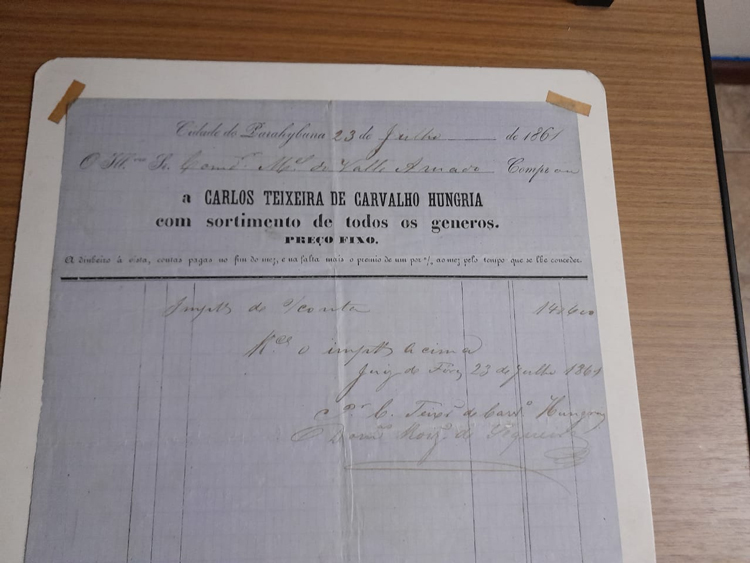 Cidade do Parahybuna 23 de Julho de 1861
O Ill.mo Sr. Comd.r M.el do Valle Amado Comprou
a CARLOS TEIXEIRA DE CARVALHO HUNGRIA
com sortimento de todos os generos.
PREÇO FIXO.
A dinheiro à vista, contas pagas no fim do mez, e na falta mais o premio de um por %, ao mez pelo tempo que se lhe conceder.
Imp.te de s/conta 14$600
R.ce o imp.te acima
Juiz de Fóra 23 de Julho 1861
P. C. Teix.a de Carv.o Hungria